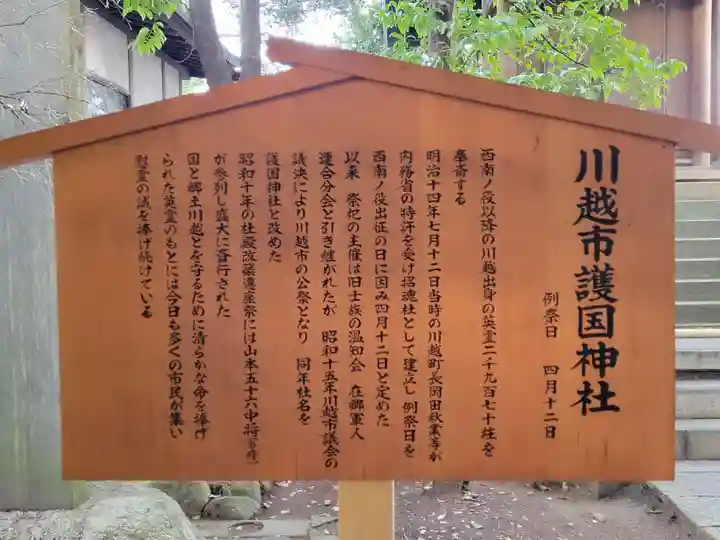 川越市護国神社
例祭日 四月十二日
西南ノ役以降の川越出身の英霊二千九百七十柱を
奉斎する
明治十四年七月十二日当時の川越町長岡田秋業等が
内務省の特許を受け招魂社として建立し 例祭日を
西南ノ役出征の日に因み四月十二日と定めた
以来 祭祀の主催は旧士族の温知会 在郷軍人
連合分会と引き継がれたが 昭和十五年川越市議会の
議決により川越市の公祭となり 同年社名を
護国神社と改めた
昭和十年の社殿改築遷座祭には山本五十六中将
が参列し盛大に斎行された
国と郷土川越とを守るために清らかな命を捧げ
られた英霊のもとには今日も多くの市民が集い
慰霊の誠を捧げ続けている